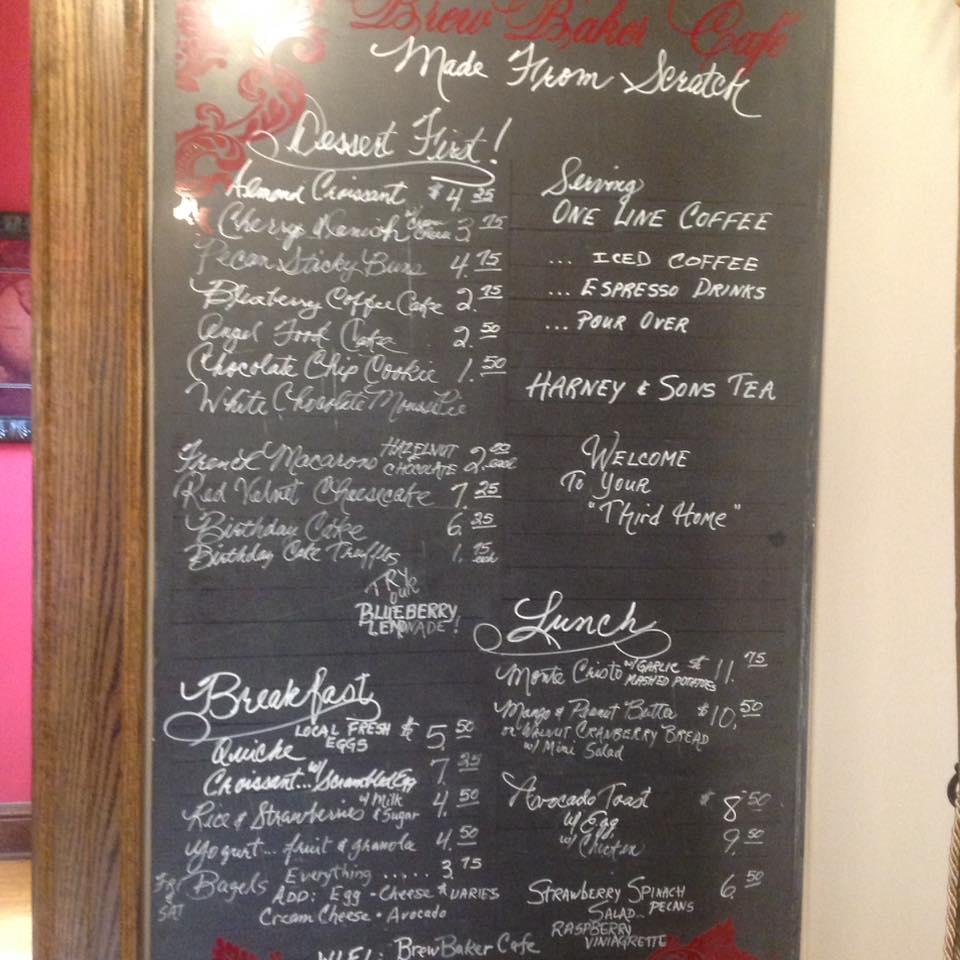 Brew Baker Café
Made From Scratch
Dessert First!
Almond Croissant $4.25
Cherry Danish w/ Cream Cheese 3.75
Pecan Sticky Buns 4.75
Blueberry Coffee Cake 2.75
Angel Food Cake 2.50
Chocolate Chip Cookie 1.50
White Chocolate Mousse Pie
French Macarons HAZELNUT CHOCOLATE 2.00 each
Red Velvet Cheesecake 7.25
Birthday Cake 6.25
Birthday Cake Truffles 1.75 each
TRY
OUR
BLUEBERRY
LEMONADE!
Serving
ONE LINE COFFEE
... ICED COFFEE
... ESPRESSO DRINKS
... POUR OVER
HARNEY & SONS TEA
WELCOME
To YOUR
"Third Home"
Breakfast
Quiche LOCAL FRESH EGGS $5.50
Croissant... w/ Scrambled Egg 7.25
Rice & Strawberries w/ Milk & Sugar 4.50
Yogurt... fruit & granola 4.50
FRI & SAT Bagels Everything ..... 3.75
ADD: Egg - Cheese $ VARIES
Cream Cheese • Avocado
Lunch
Monte Cristo w/ GARLIC MASHED POTATOES $11.75
Mango & Peanut Butter $10.50
on WALNUT CRANBERRY BREAD
w/ Mini Salad
Avocado Toast $8.50
w/ Egg
w/ Chicken 9.50
STRAWBERRY SPINACH 6.50
SALAD... PECANS
RASPBERRY
VINIAGRETTE
WIFI: BrewBaker Cafe